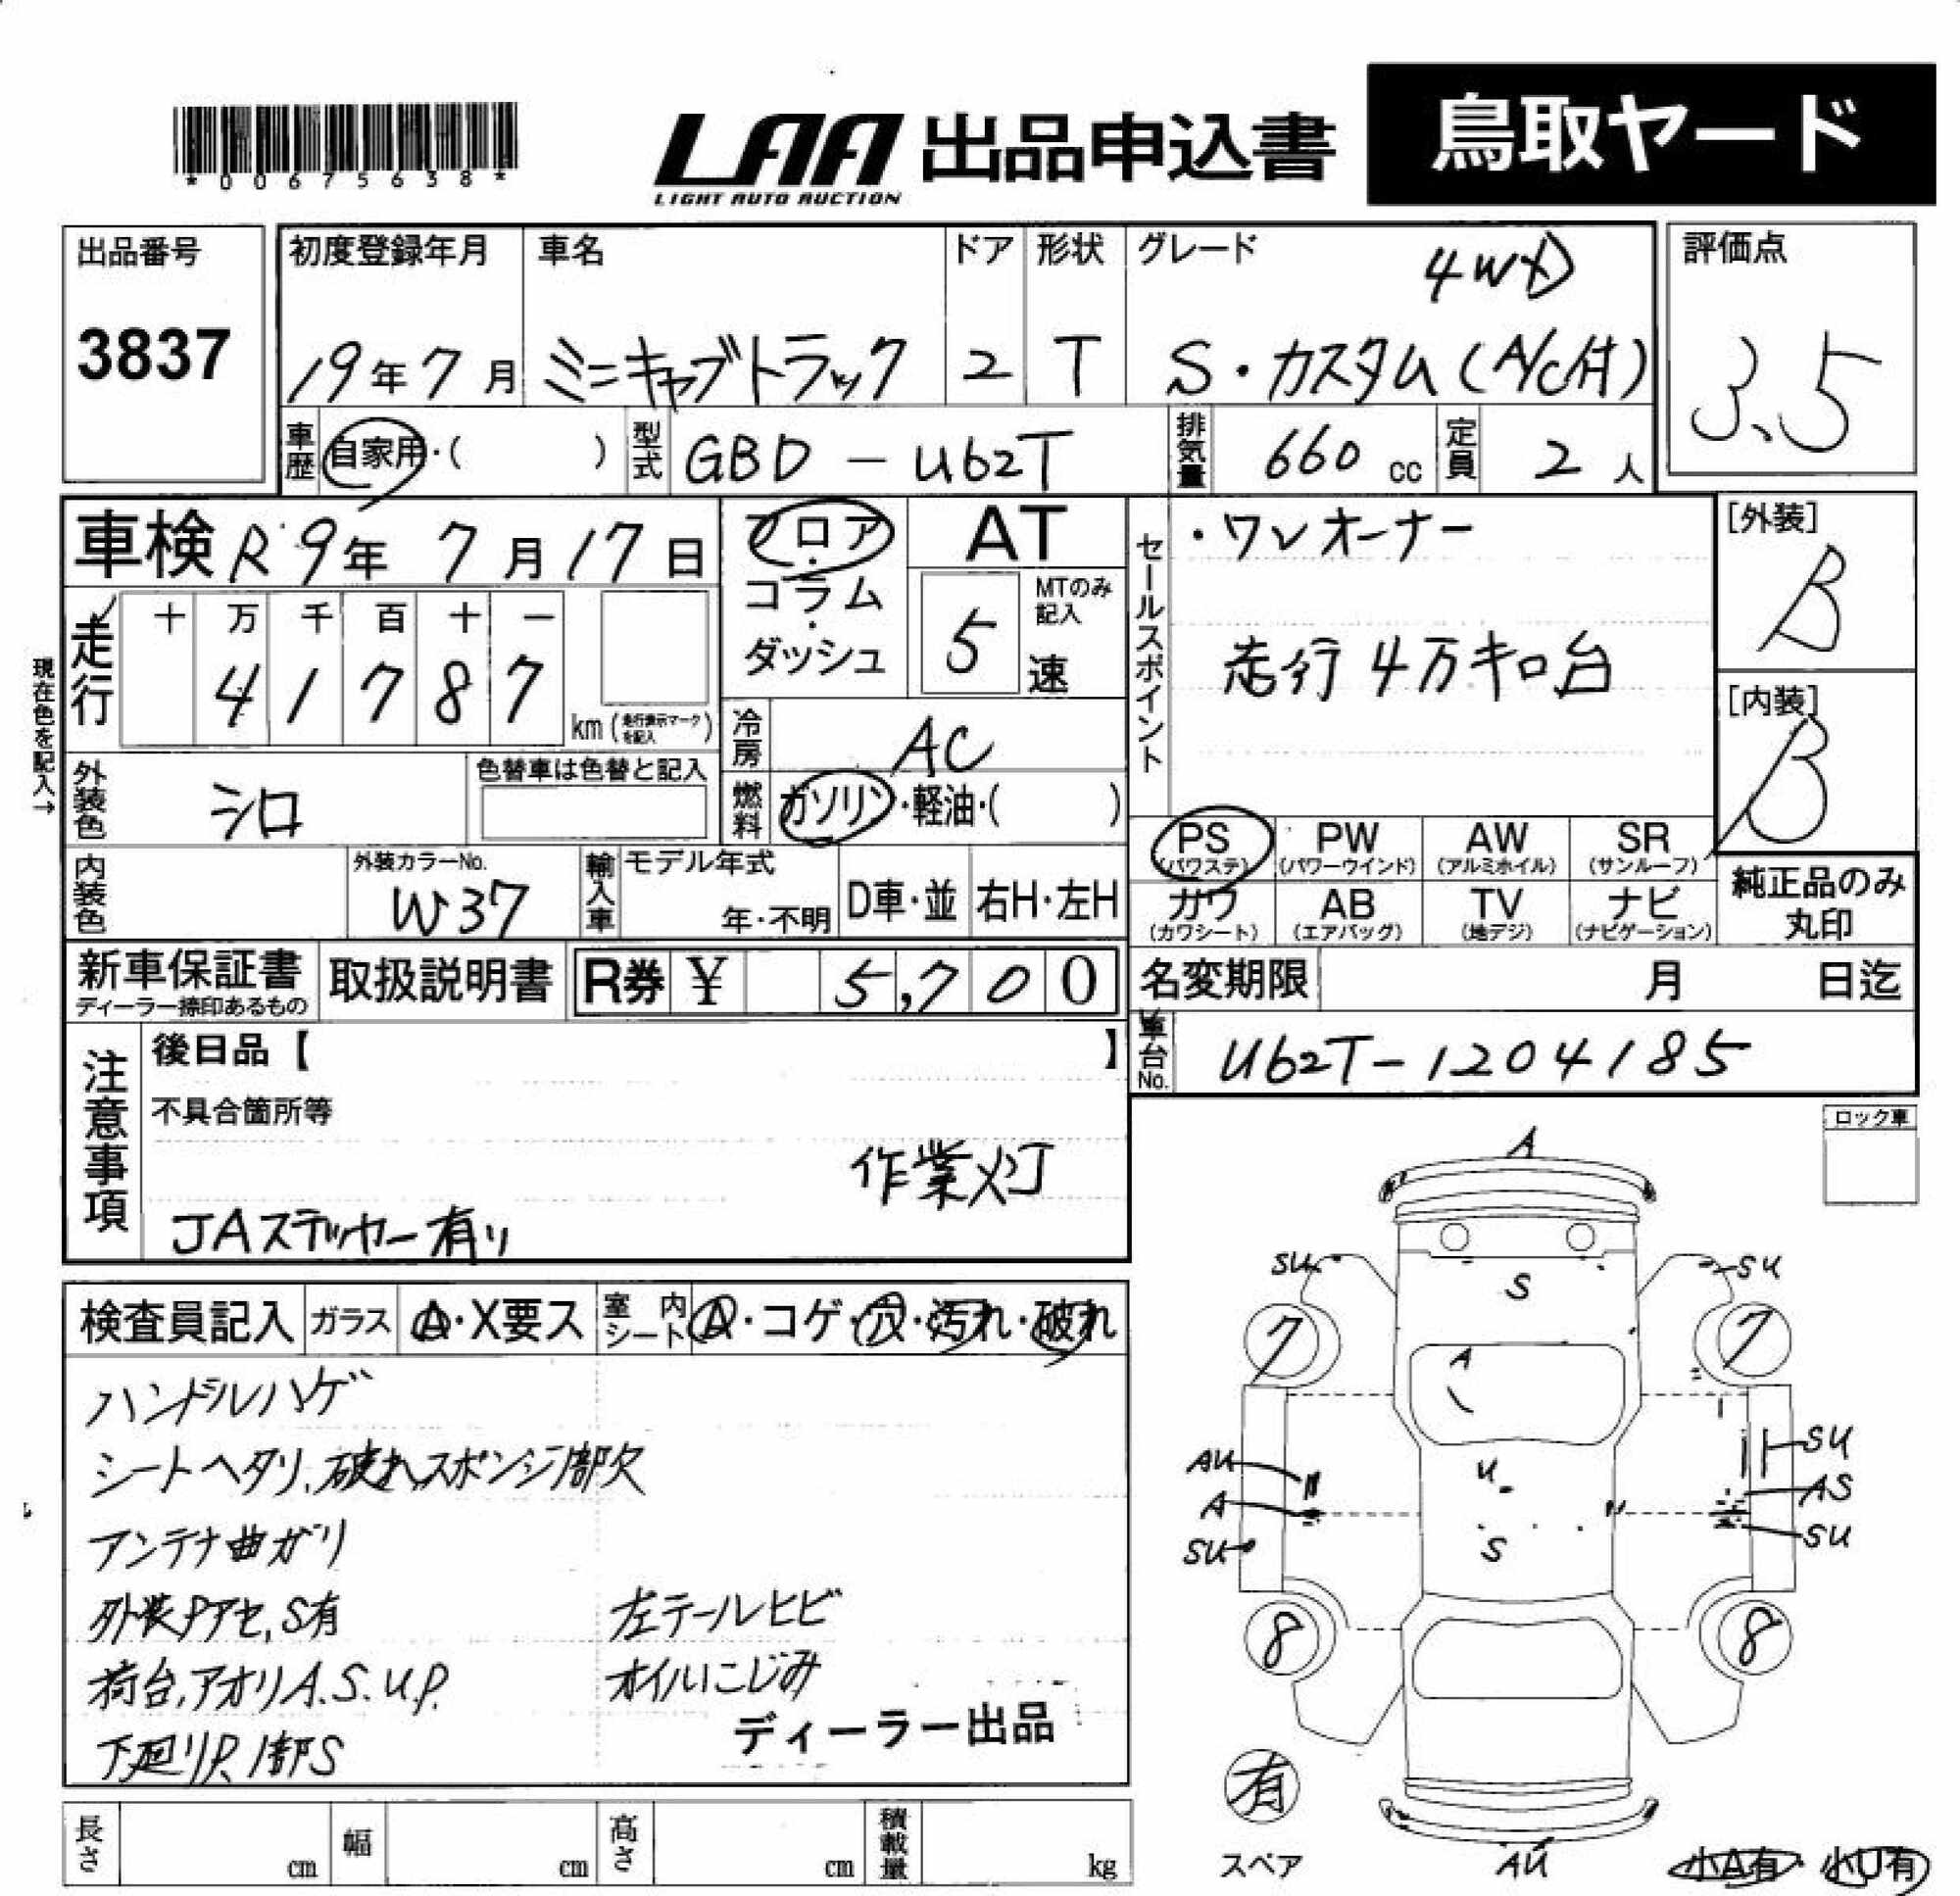 *00675638*
LAA 出品申込書
LIGHT AUTO AUCTION
鳥取ヤード
出品番号
3837
初度登録年月
19年7月
車名
ミニキャブトラック
ドア
2
形状
T
グレード
4WD
S・カスタム(A/C付)
評価点
3.5
車歴
自家用・( )
型式
GBD-U62T
排気量
660 cc
定員
2 人
車検 R9年7月17日
フロア・コラム・ダッシュ
AT
MTのみ記入
5 速
セールスポイント
・ワンオーナー
走行4万キロ台
[外装]
B
[内装]
B
現在色を記入→
走行
十 万 千 百 十 一
4 1 7 8 7
km(走行表示マークを記入)
冷房
AC
外装色
シロ
色替車は色替と記入
燃料
ガソリン・軽油・( )
PS (パワステ)
PW (パワーウインド)
AW (アルミホイル)
SR (サンルーフ)
カワ (カワシート)
AB (エアバッグ)
TV (地デジ)
ナビ (ナビゲーション)
純正品のみ丸印
内装色
外装カラーNo.
W37
輸入車
モデル年式
年・不明
D車・並
右H・左H
新車保証書
ディーラー捺印あるもの
取扱説明書
R券 ¥ 5,700
名変期限 月 日迄
車台No.
U62T-1204185
注意事項
後日品【 】
不具合箇所等
作業灯
JAステッカー有り
ロック車
検査員記入
ガラス
A・X要ス
室内シート
A・コゲ・穴・汚れ・破れ
ハンドルハゲ
シートヘタリ、破れ、スポンジ1部欠
アンテナ曲がり
外装Pアセ、S有
左テールヒビ
荷台、アオリA.S.U.P.
オイルにじみ
下廻りP、1部S
ディーラー出品
A
SU
SU
S
7
7
A
SU
AU
U
AS
A
SU
SU
S
8
8
有
スペア
AU
小A有・小U有
長さ cm
幅 cm
高さ cm
積載量 kg